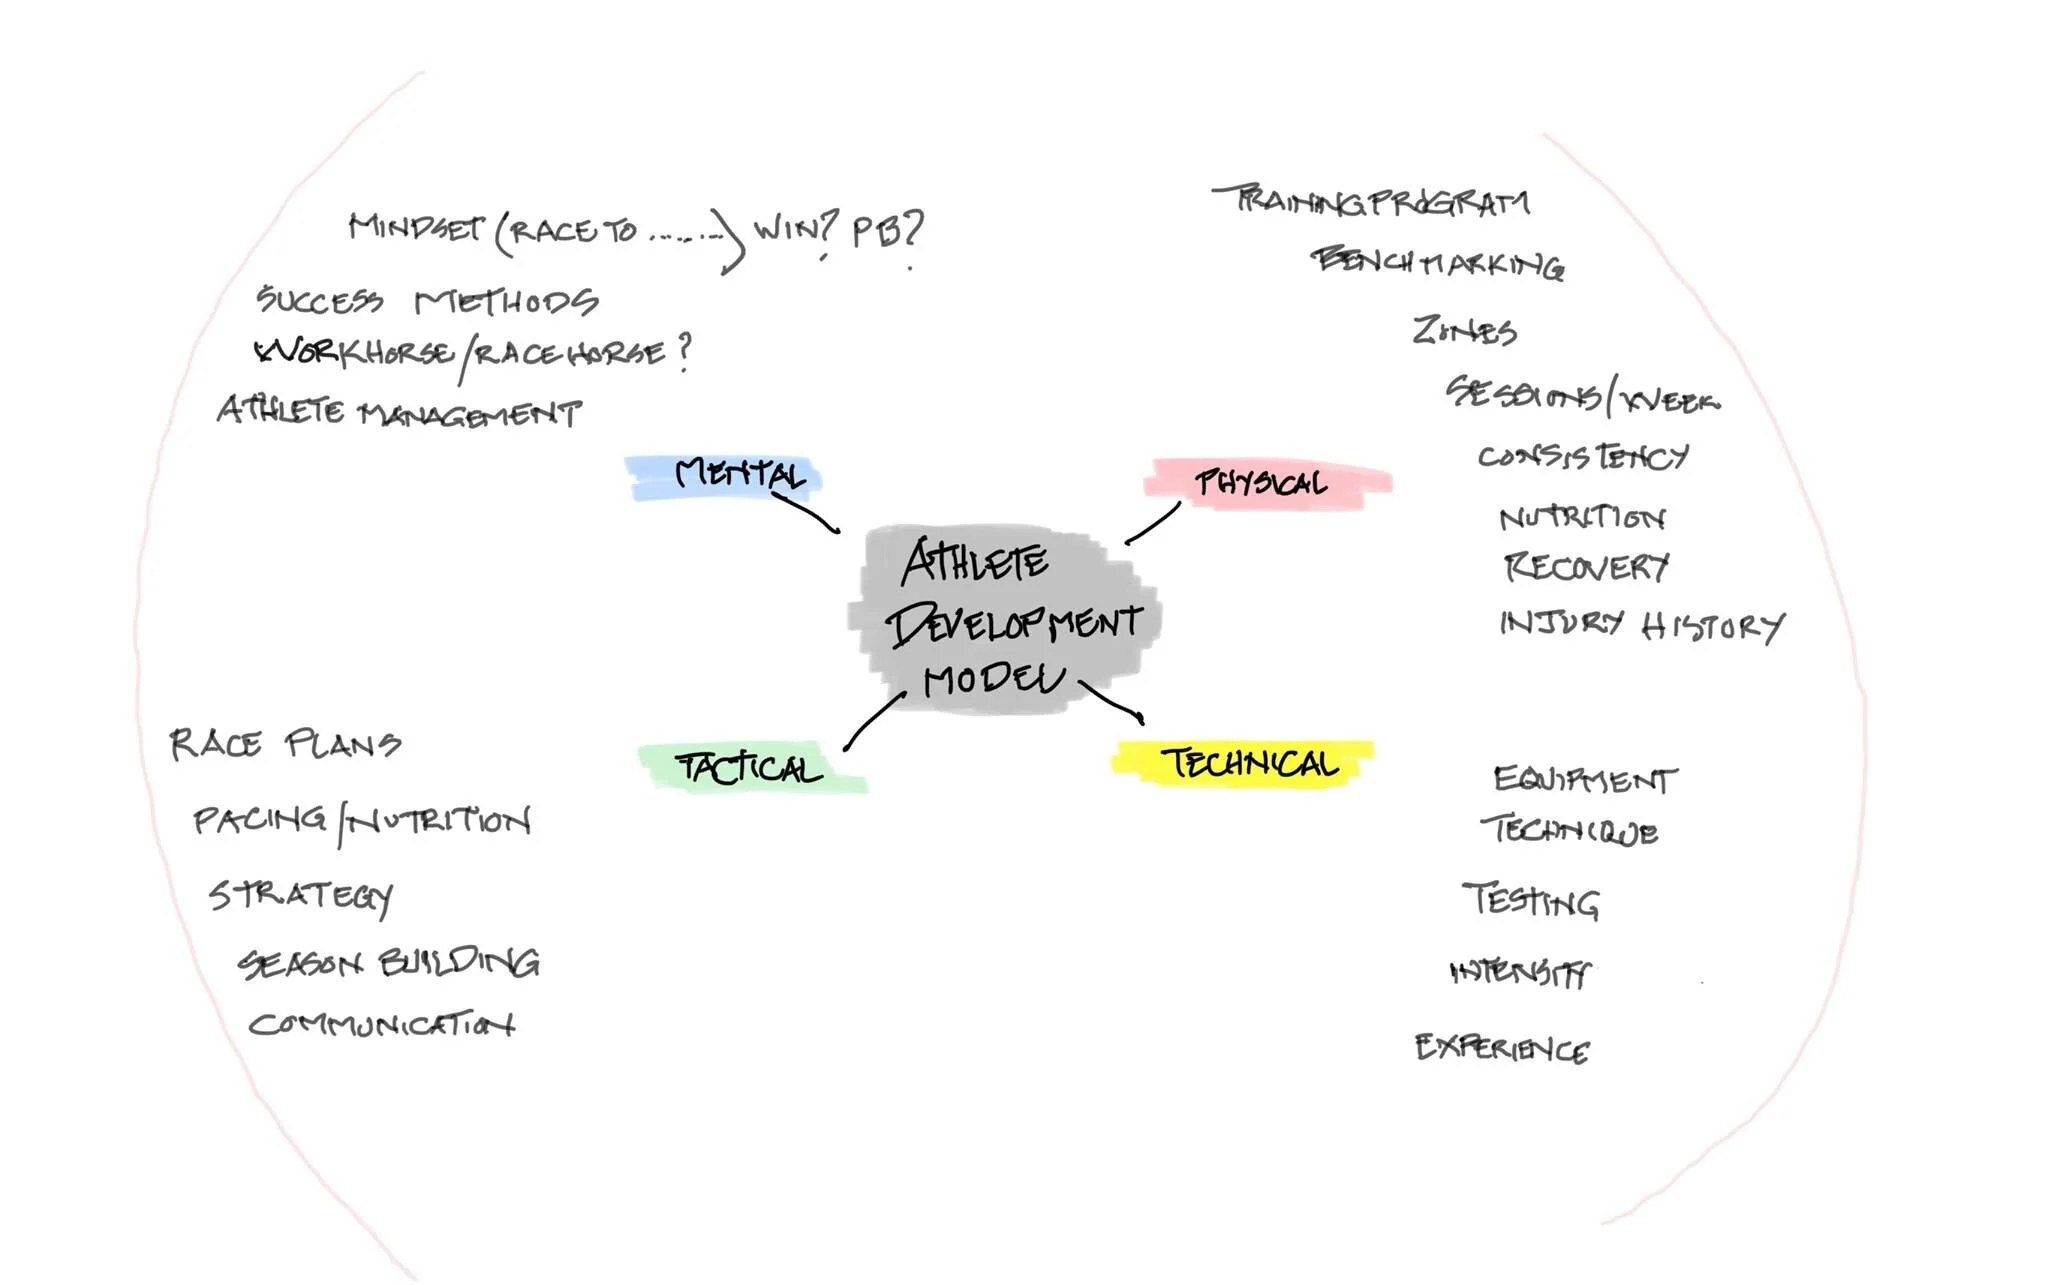 MINDSET (RACE TO ........) WIN? PB?
SUCCESS METHODS
WORKHORSE/RACEHORSE?
ATHLETE MANAGEMENT
MENTAL
TRAINING PROGRAM
BENCHMARKING
ZONES
SESSIONS/WEEK
CONSISTENCY
NUTRITION
RECOVERY
INJURY HISTORY
PHYSICAL
ATHLETE
DEVELOPMENT
MODEL
TACTICAL
RACE PLANS
PACING/NUTRITION
STRATEGY
SEASON BUILDING
COMMUNICATION
TECHNICAL
EQUIPMENT
TECHNIQUE
TESTING
INTENSITY
EXPERIENCE